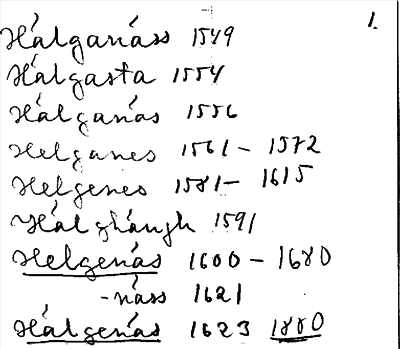 1.
Hálganäss 1549
Hálgasta 1554
Hálganäs 1556
Helganes 1561 - 1572
Helgenes 1581 - 1615
1591
Helgenäs 1600 - 1680
-näss 1621
Hálgenäs 1623 1880